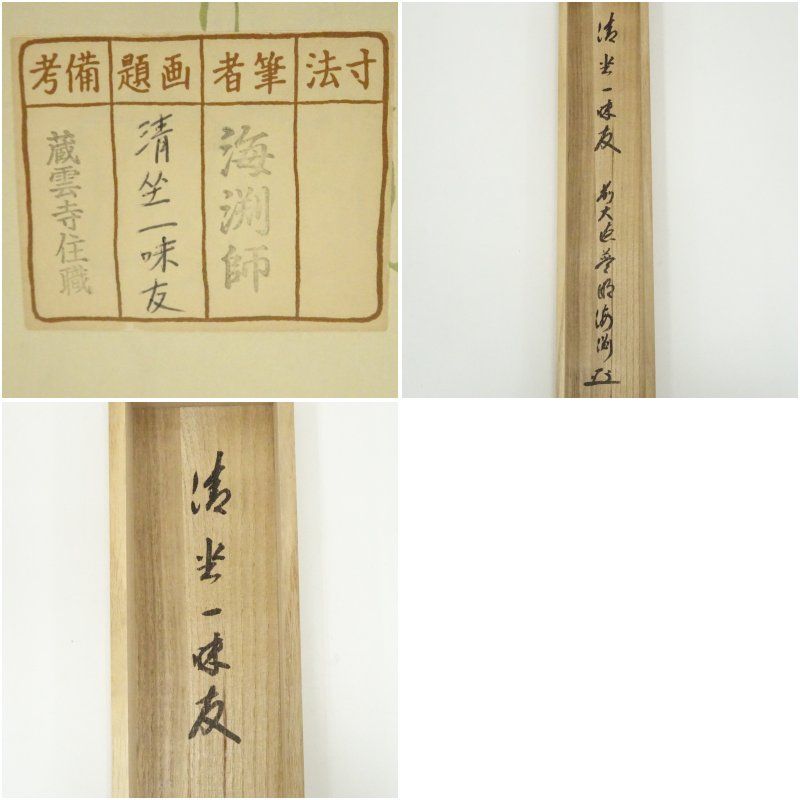 寸法
筆者
画題
備考
海渕師
清坐一味友
蔵雲寺住職
清坐一味友 前大徳夢明海渕
清坐一味友